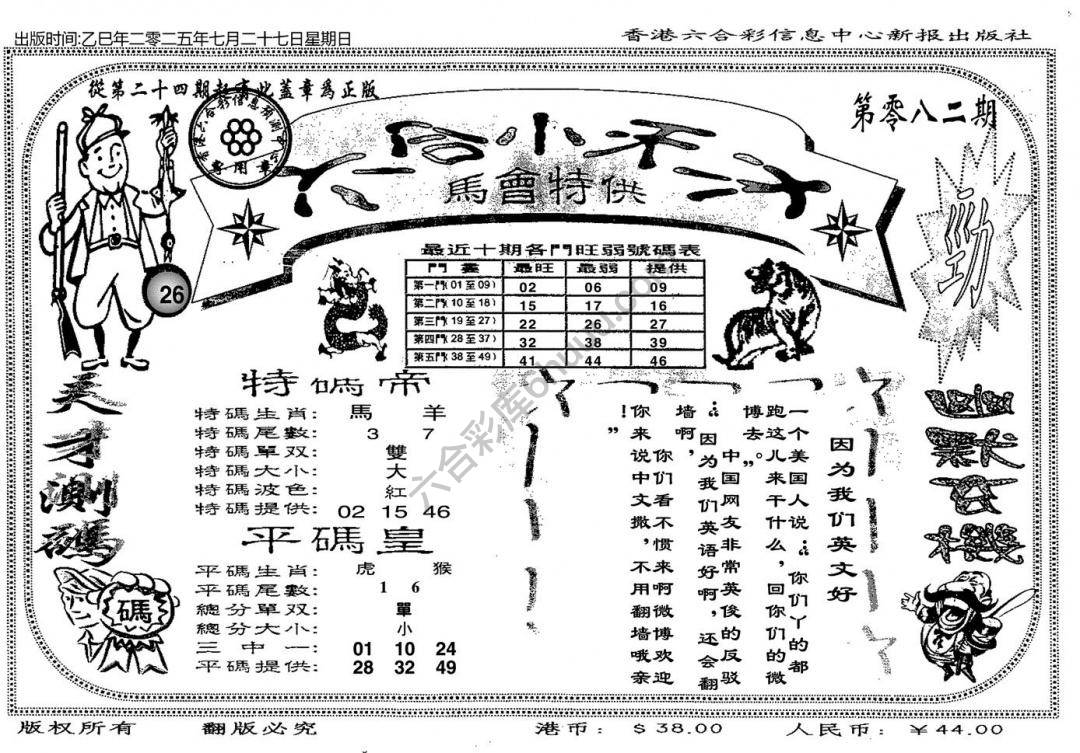 出版时间:乙巳年二零二五年七月二十七日星期日
香港六合彩信息中心新报出版社
從第二十四期起有此蓋章爲正版
香港六合彩信息預測中心
專用章
第零八二期
馬會特供
勁
26
最近十期各門旺弱號碼表
門畫 最旺 最弱 提供
第一門(01至09) 02 06 09
第二門(10至18) 15 17 16
第三門(19至27) 22 26 27
第四門(28至37) 32 38 39
第五門(38至49) 41 44 46
天才測碼
特碼帝
特碼生肖: 馬 羊
特碼尾數: 3 7
特碼單双: 雙
特碼大小: 大
特碼波色: 紅
特碼提供: 02 15 46
平碼皇
平碼生肖: 虎 猴
平碼尾數: 1 6
總分單双: 單
總分大小: 小
三中一: 01 10 24
平碼提供: 28 32 49
碼
幽默玄機
因为我们英文好
一个美国人说:“你们丫的都
跑这儿来干什么,回你们的微
博去。”
中国网友非常英俊的反驳
:“因为我们英语好啊,还会翻
墙啊,
你们看不惯来啊微博欢迎
你来说中文撒,不用翻墙哦亲
!”
六合彩库6huuu.com
版权所有
翻版必究
港币: $38.00
人民币: ¥44.00